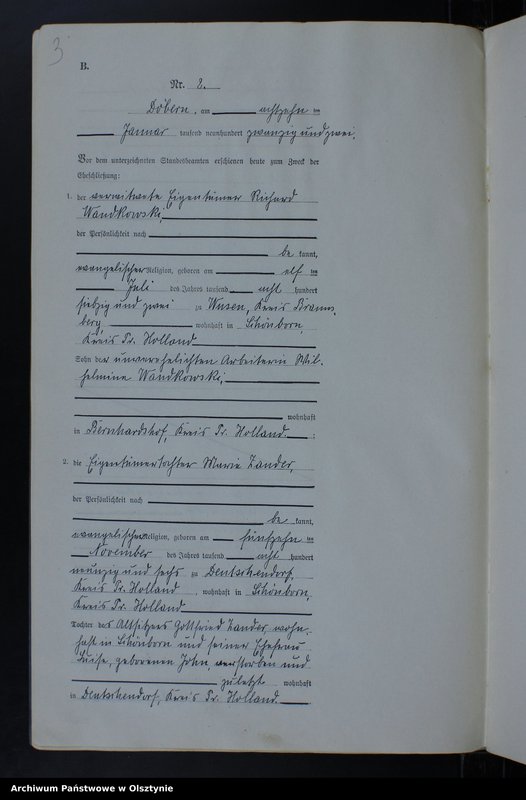 3
B.
Nr. 2.
Döbern, am achtzehn ten
Januar tausend neunhundert zwanzig und zwei.
Vor dem unterzeichneten Standesbeamten erschienen heute zum Zweck der
Eheschließung:
1. der verwitwete Eigentümer Richard
Wandkowski,
der Persönlichkeit nach
be kannt,
evangelischer Religion, geboren am elf ten
Juli des Jahres tausend acht hundert
siebzig und zwei zu Wusen, Kreis Brauns
berg, wohnhaft in Schönborn,
Kreis Pr. Holland
Sohn der unverehelichten Arbeiterin Wil-
helmine Wandkowski,
wohnhaft
in Bernhardshof, Kreis Pr. Holland. ;
2. die Eigentümertochter Marie Zander,
der Persönlichkeit nach
be kannt,
evangelischer Religion, geboren am fünfzehn ten
November des Jahres tausend acht hundert
neunzig und sechs zu Deutschendorf,
Kreis Pr. Holland, wohnhaft in Schönborn,
Kreis Pr. Holland
Tochter des Altsitzers Gottfried Zander wohn-
haft in Schönborn und seiner Ehefrau
Luise, geborenen John, verstorben und
zuletzt wohnhaft
in Deutschendorf, Kreis Pr. Holland.
Archiwum Państwowe w Olsztynie